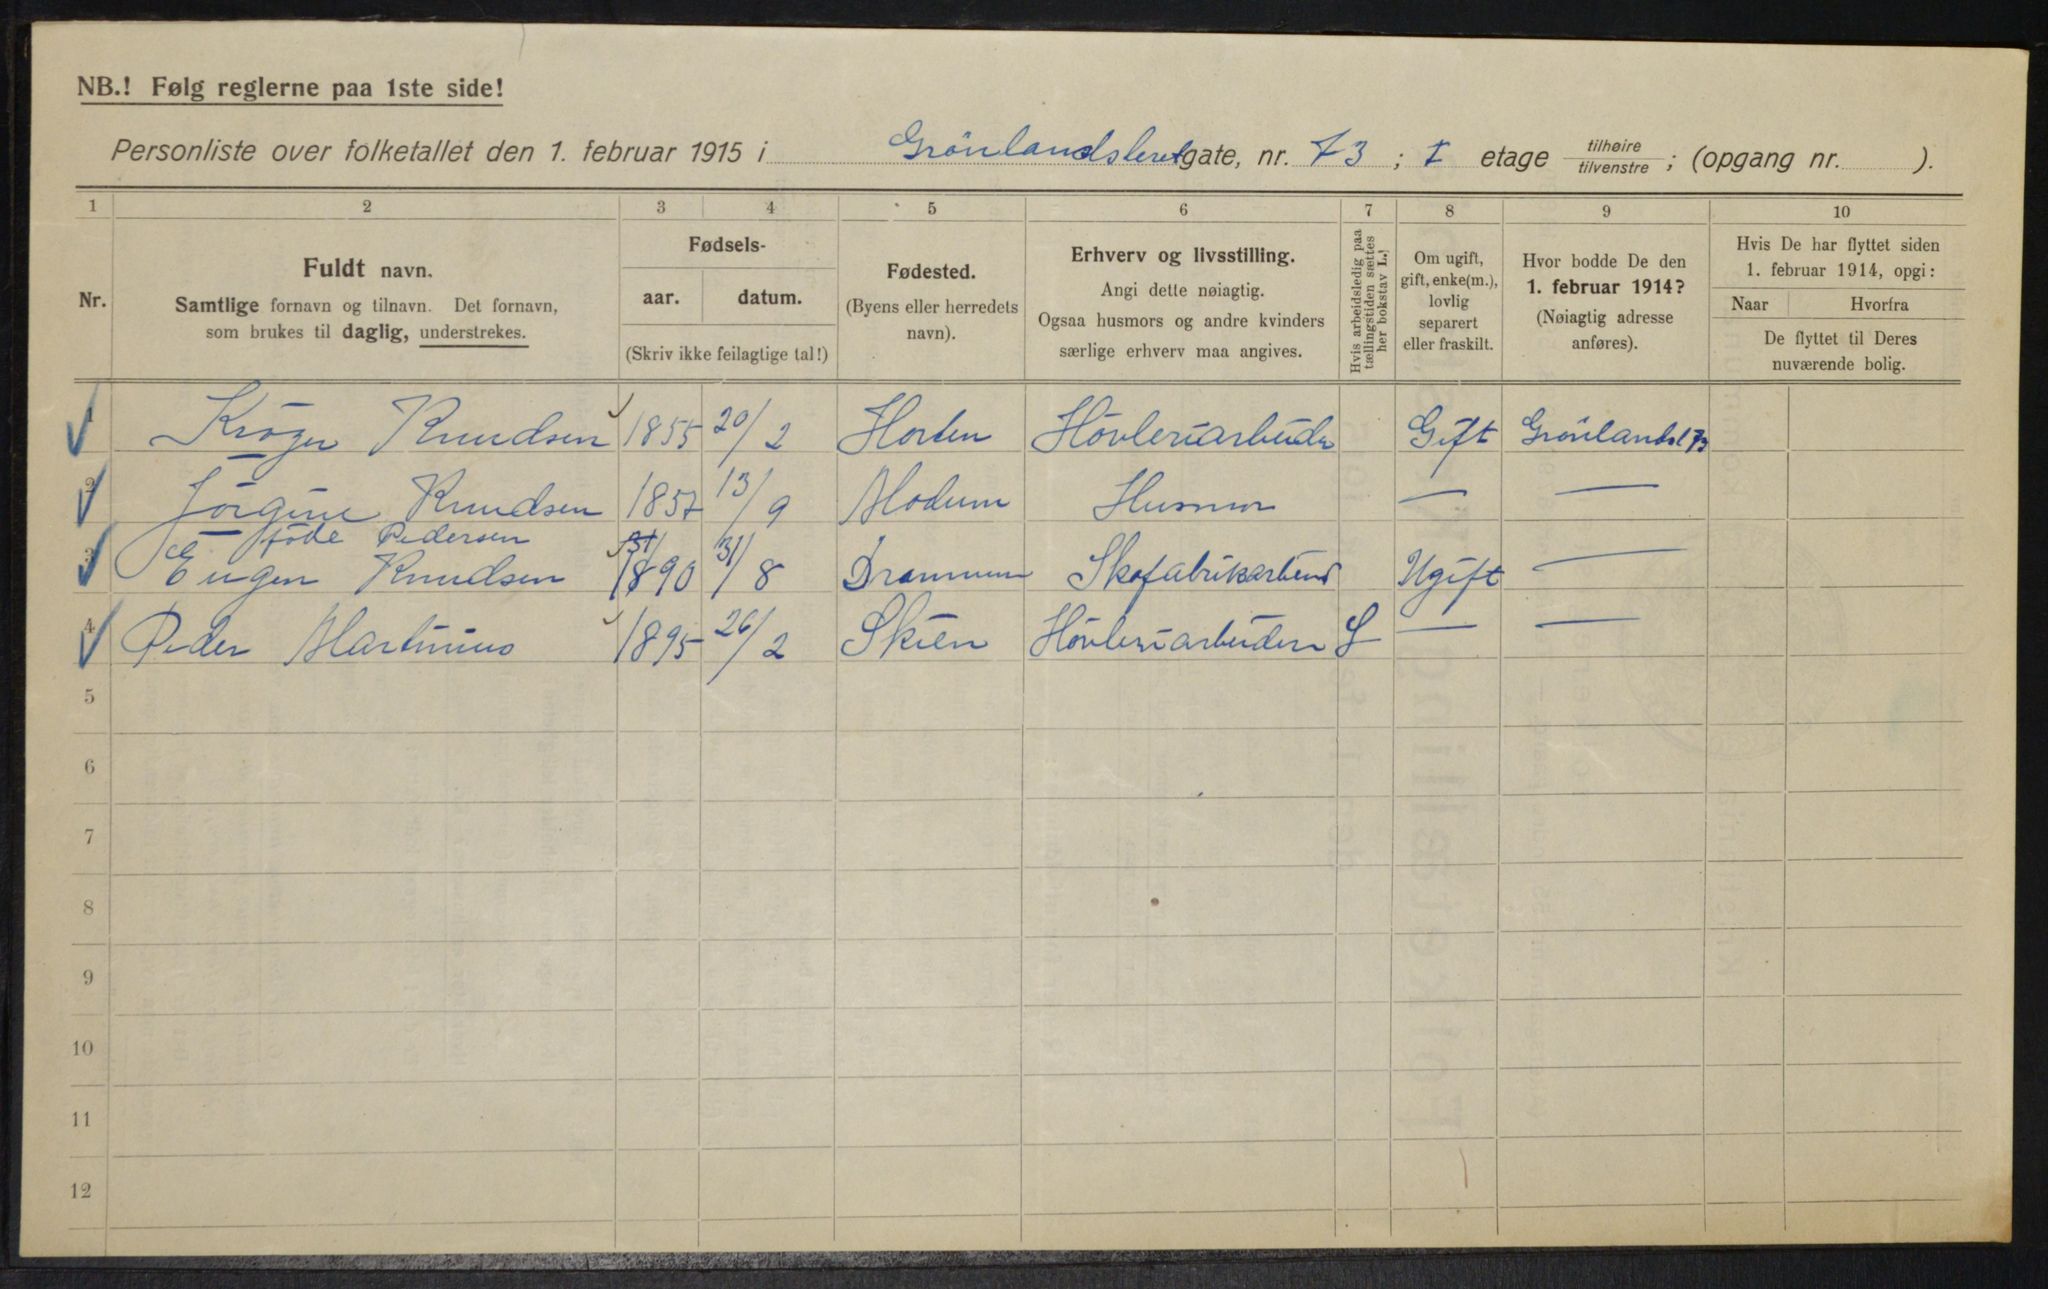 NB.! Følg reglerne paa 1ste side!
Personliste over folketallet den 1. februar 1915 i Grönlandsleret gate, nr. 73 ; I etage tilhøire / tilvenstre ; (opgang nr. ).
1 2 3 4 5 6 7 8 9 10
Nr.
Fuldt navn.
Samtlige fornavn og tilnavn. Det fornavn,
som brukes til daglig, understrekes.
Fødsels-
aar. datum.
(Skriv ikke feilagtige tal!)
Fødested.
(Byens eller herredets
navn).
Erhverv og livsstilling.
Angi dette nøiagtig.
Ogsaa husmors og andre kvinders
særlige erhverv maa angives.
Hvis arbeidsledig paa
tællingstiden sættes
her bokstav L.!
Om ugift,
gift, enke(m.),
lovlig
separert
eller fraskilt.
Hvor bodde De den
1. februar 1914?
(Nøiagtig adresse
anføres).
Hvis De har flyttet siden
1. februar 1914, opgi:
Naar Hvorfra
De flyttet til Deres
nuværende bolig.
1 Kröger Knudsen 1855 20/2 Horten Hövleriarbeider Gift Grönlandsl 73
2 Jörgine Knudsen 1857 13/9 Modum Husmor — —
föde Pedersen
3 Eugen Knudsen 1890 31/8 Drammen Skofabrikarbeid Ugift —
4 Peder Martinius 1895 26/2 Skien Hövleriarbeider L — —
5
6
7
8
9
10
11
12